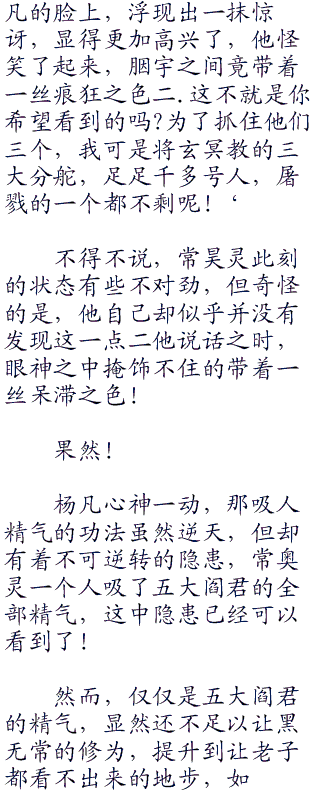 凡的脸上，浮现出一抹惊
讶，显得更加高兴了，他怪
笑了起来，胭宇之间竟带着
一丝痕狂之色二.这不就是你
希望看到的吗?为了抓住他们
三个，我可是将玄冥教的三
大分舵，足足千多号人，屠
戮的一个都不剩呢！‘
不得不说，常昊灵此刻
的状态有些不对劲，但奇怪
的是，他自己却似乎并没有
发现这一点二他说话之时，
眼神之中掩饰不住的带着一
丝呆滞之色！
果然！
杨凡心神一动，那吸人
精气的功法虽然逆天，但却
有着不可逆转的隐患，常奥
灵一个人吸了五大阎君的全
部精气，这中隐患已经可以
看到了！
然而，仅仅是五大阎君
的精气，显然还不足以让黑
无常的修为，提升到让老子
都看不出来的地步，如